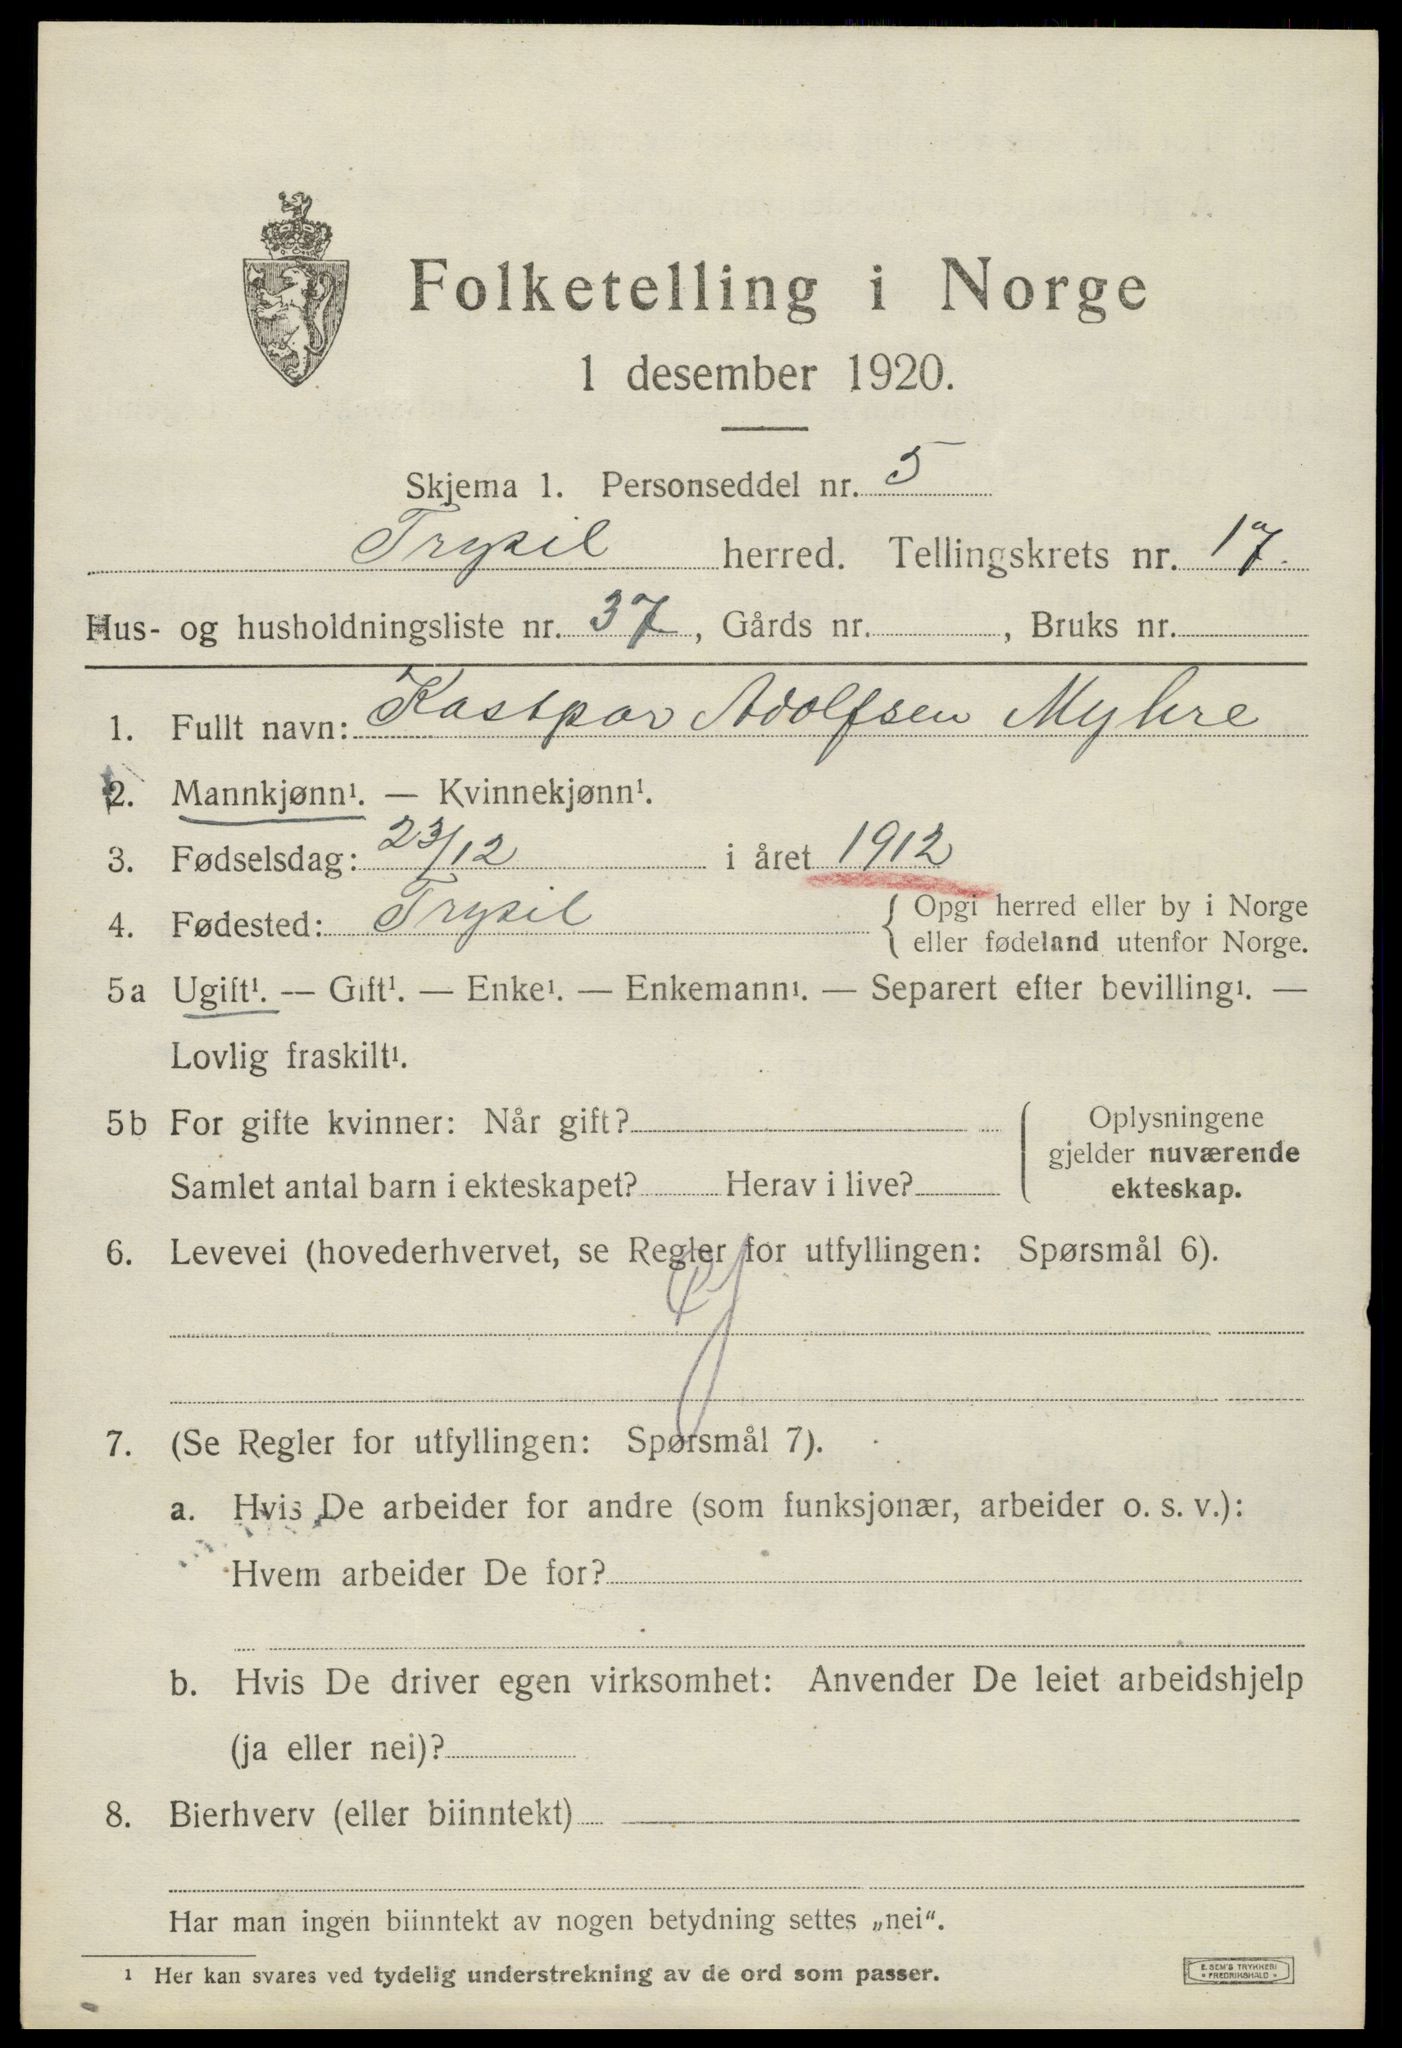 Folketelling i Norge
1 desember 1920.
Skjema 1. Personseddel nr. 5
Trysil herred. Tellingskrets nr. 17.
Hus- og husholdningsliste nr. 37, Gårds nr. , Bruks nr.
1. Fullt navn: Kastpar Adolfsen Myhre
2. Mannkjønn¹. — Kvinnekjønn¹.
3. Fødselsdag: 23/12 i året 1912
4. Fødested: Trysil { Opgi herred eller by i Norge
eller fødeland utenfor Norge.
5a Ugift¹. — Gift¹. — Enke¹. — Enkemann¹. — Separert efter bevilling¹. —
Lovlig fraskilt¹.
5b For gifte kvinner: Når gift? { Oplysningene
gjelder nuværende
Samlet antal barn i ekteskapet? Herav i live? ekteskap.
6. Levevei (hovederhvervet, se Regler for utfyllingen: Spørsmål 6).
7. (Se Regler for utfyllingen: Spørsmål 7).
a. Hvis De arbeider for andre (som funksjonær, arbeider o. s. v.):
Hvem arbeider De for?
b. Hvis De driver egen virksomhet: Anvender De leiet arbeidshjelp
(ja eller nei)?
8. Bierhverv (eller biinntekt)
Har man ingen biinntekt av nogen betydning settes „nei“.
¹ Her kan svares ved tydelig understrekning av de ord som passer.
E. SEM'S TRYKKERI
* FREDRIKSHALD *